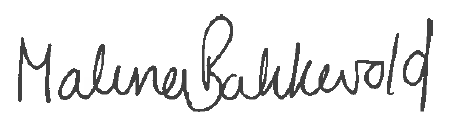 Malena Bakkevold